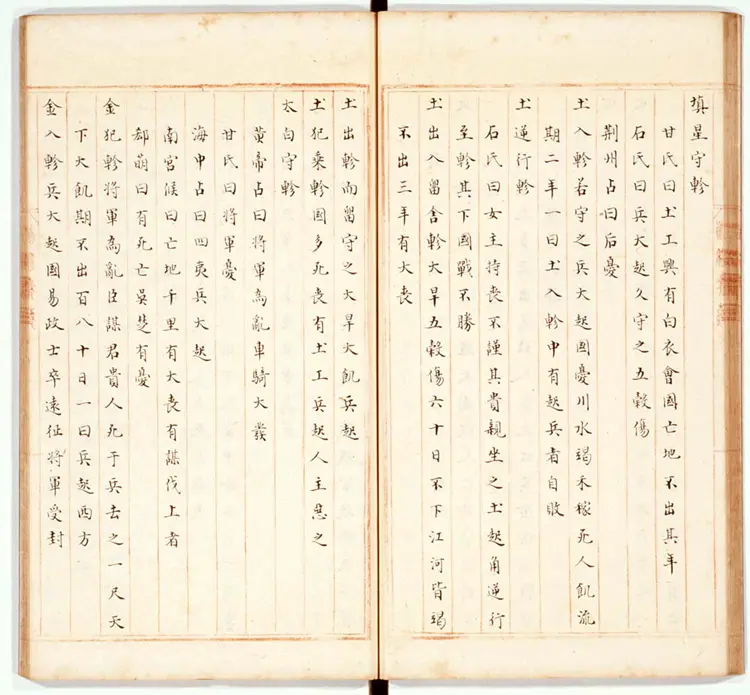 填星守軫
甘氏曰土工興有白衣會國亡地不出其年
石氏曰兵大起久守之五穀傷
荆州占曰后憂
土入軫若守之兵大起國憂川水竭禾稼死人飢流
期二年一曰土入軫中有起兵者自敗
土逆行軫
石氏曰女主持喪不謹其貴親坐之土起角逆行
至軫其下國戰不勝
土出入留舍軫大旱五穀傷六十日不下江河皆竭
不出三年有大喪
土出軫而留守之大旱大飢兵起
土犯乘軫國多死喪有土工兵起人主惡之
太白守軫
黄帝占曰將軍為亂車騎大發
甘氏曰將軍憂
海中占曰四夷兵大起
南宮候曰亡地千里有大喪有謀伐上者
郄萌曰有死亡吳楚有憂
金犯軫將軍為亂臣謀君貴人死于兵去之一尺天
下大飢期不出百八十日一曰兵起西方
金入軫兵大起國易政士卒遠征將軍受封